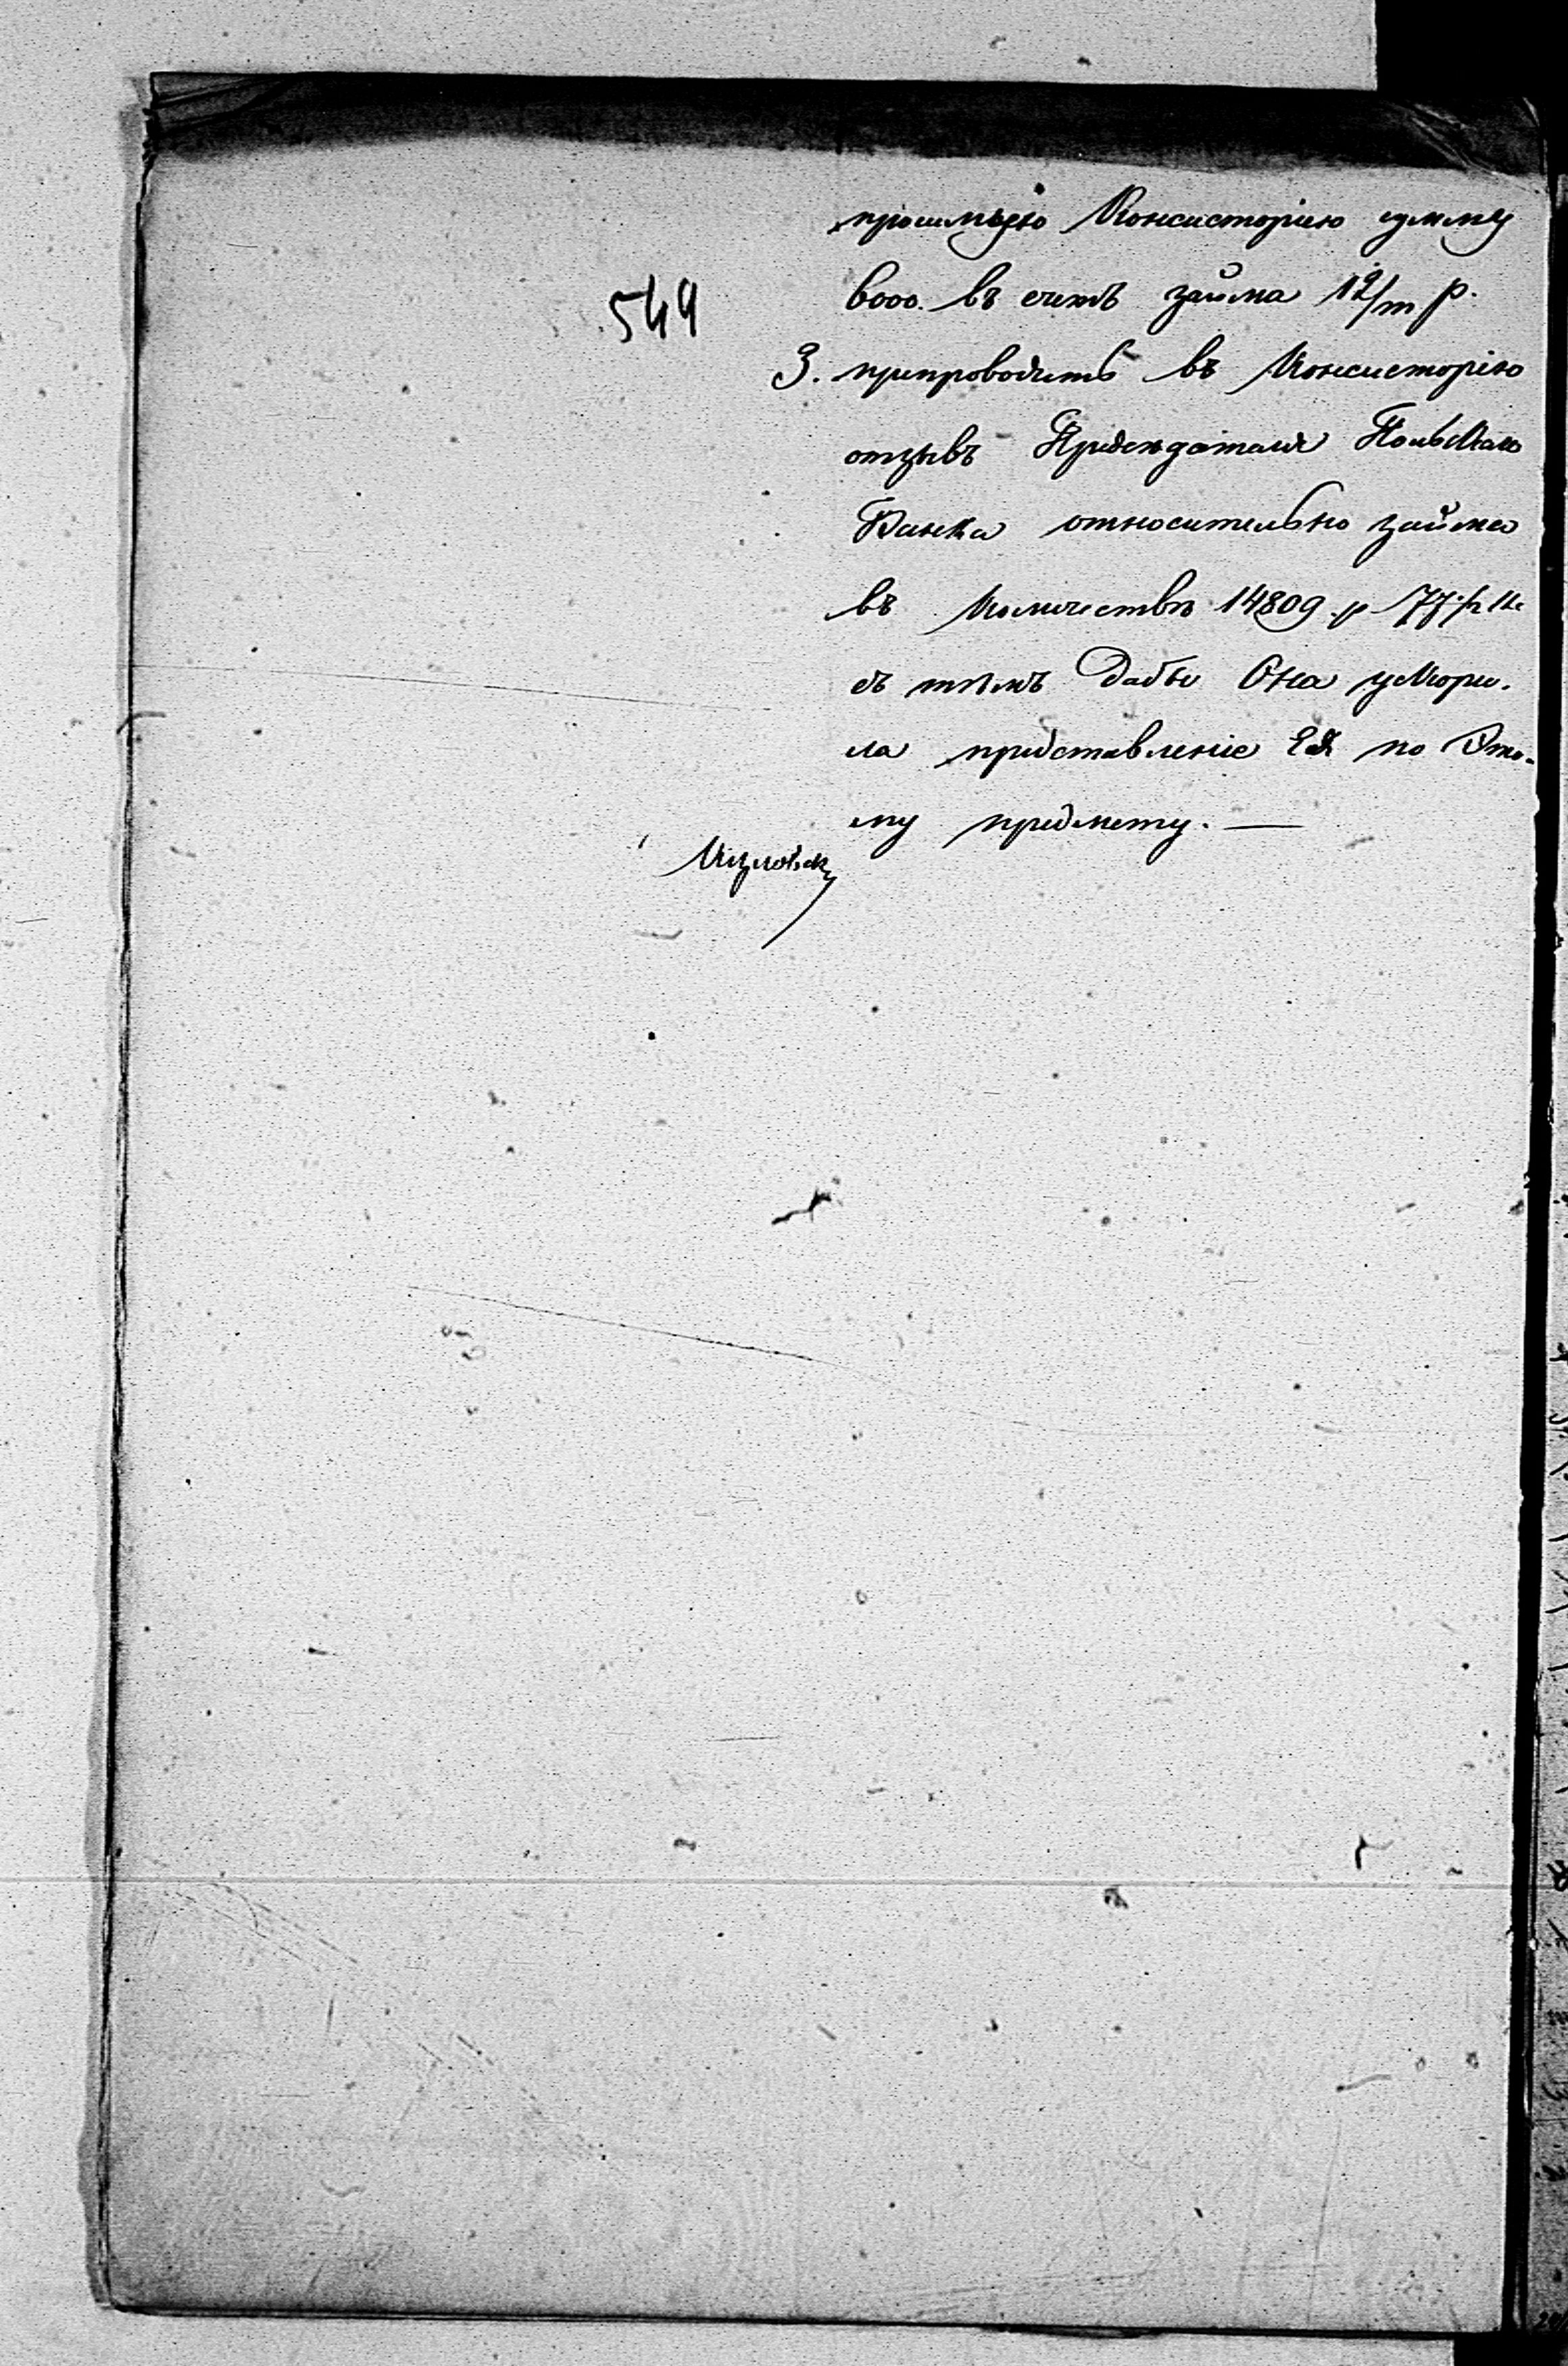 549
Консисторію сумму
въ счетъ займа 12/m р.
3. препроводить въ Консисторію
отзывъ Предсѣдателя Польскаго
Банка относительно займа
въ количествѣ 14809 р 77½ к
съ тѣмъ дабы Она ускори-
ла представленіе Ея по Это-
му предмету. —